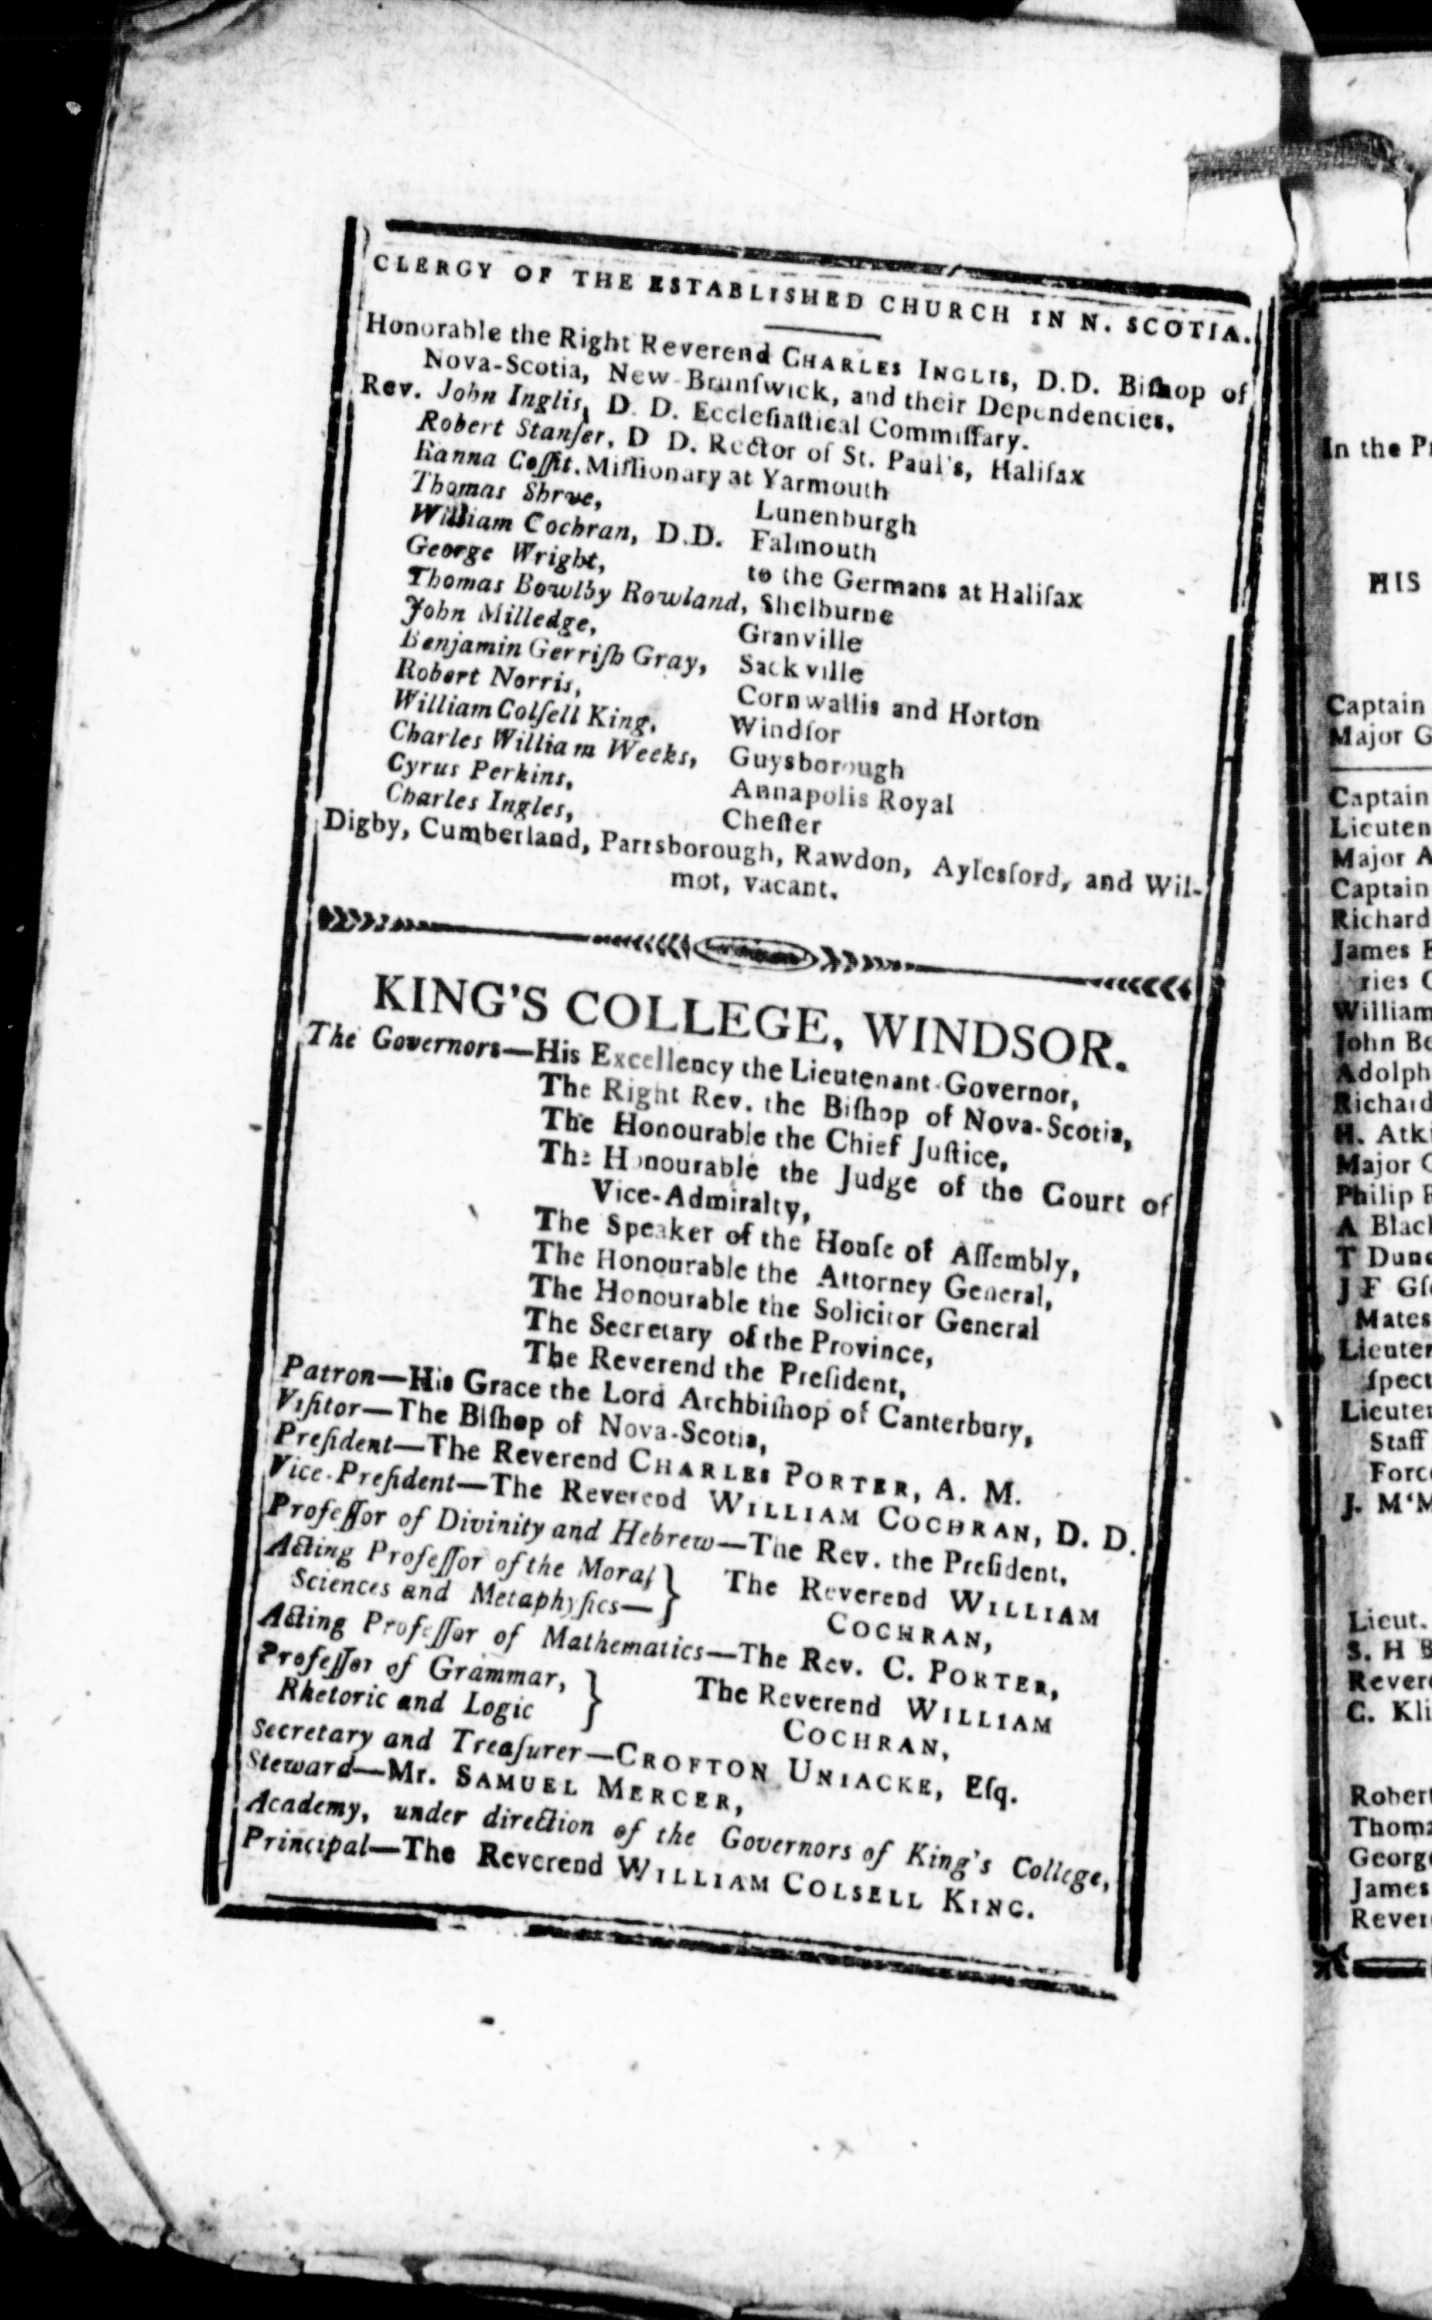 CLERGY OF THE ESTABLISHED CHURCH IN N. SCOTIA.
Honorable the Right Reverend CHARLES INGLIS, D.D. Biſhop of
Nova-Scotia, New-Brunſwick, and their Dependencies.
Rev. John Inglis, D. D. Eccleſiaſtical Commiſſary.
Robert Stanſer, D D. Rector of St. Paul's, Halifax
Ranna Coſſit, Miſſionary at Yarmouth
Thomas Shrve, Lunenburgh
William Cochran, D.D. Falmouth
George Wright, to the Germans at Halifax
Thomas Bowlby Rowland, Shelburne
John Milledge, Granville
Benjamin Gerriſh Gray, Sackville
Robert Norris, Cornwallis and Horton
William Colſell King, Windſor
Charles William Weeks, Guysborough
Cyrus Perkins, Annapolis Royal
Charles Ingles, Cheſter
Digby, Cumberland, Parrsborough, Rawdon, Aylesford, and Wil-
mot, vacant.
KING'S COLLEGE, WINDSOR.
The Governors—His Excellency the Lieutenant-Governor,
The Right Rev. the Biſhop of Nova-Scotia,
The Honourable the Chief Juſtice,
The Honourable the Judge of the Court of
Vice-Admiralty,
The Speaker of the Houſe of Aſſembly,
The Honourable the Attorney General,
The Honourable the Solicitor General
The Secretary of the Province,
The Reverend the Preſident,
Patron—His Grace the Lord Archbiſhop of Canterbury,
Viſitor—The Biſhop of Nova-Scotia,
Preſident—The Reverend CHARLES PORTER, A. M.
Vice-Preſident—The Reverend WILLIAM COCHRAN, D. D.
Profeſſor of Divinity and Hebrew—The Rev. the Preſident,
Acting Profeſſor of the Moral } The Reverend WILLIAM
Sciences and Metaphyſics— COCHRAN,
Acting Profeſſor of Mathematics—The Rev. C. PORTER,
Profeſſor of Grammar, } The Reverend WILLIAM
Rhetoric and Logic COCHRAN,
Secretary and Treaſurer—CROFTON UNIACKE, Eſq.
Steward—Mr. SAMUEL MERCER,
Academy, under direction of the Governors of King's College,
Principal—The Reverend WILLIAM COLSELL KING.
In the
HIS
Captain
Major G
Captain
Major A
Captain
Richard
James
ries
William
John
Richard
H.
Major
Philip
A
T
J F
Mates
Staff
J.
Lieut.
S. H
C.
George
James